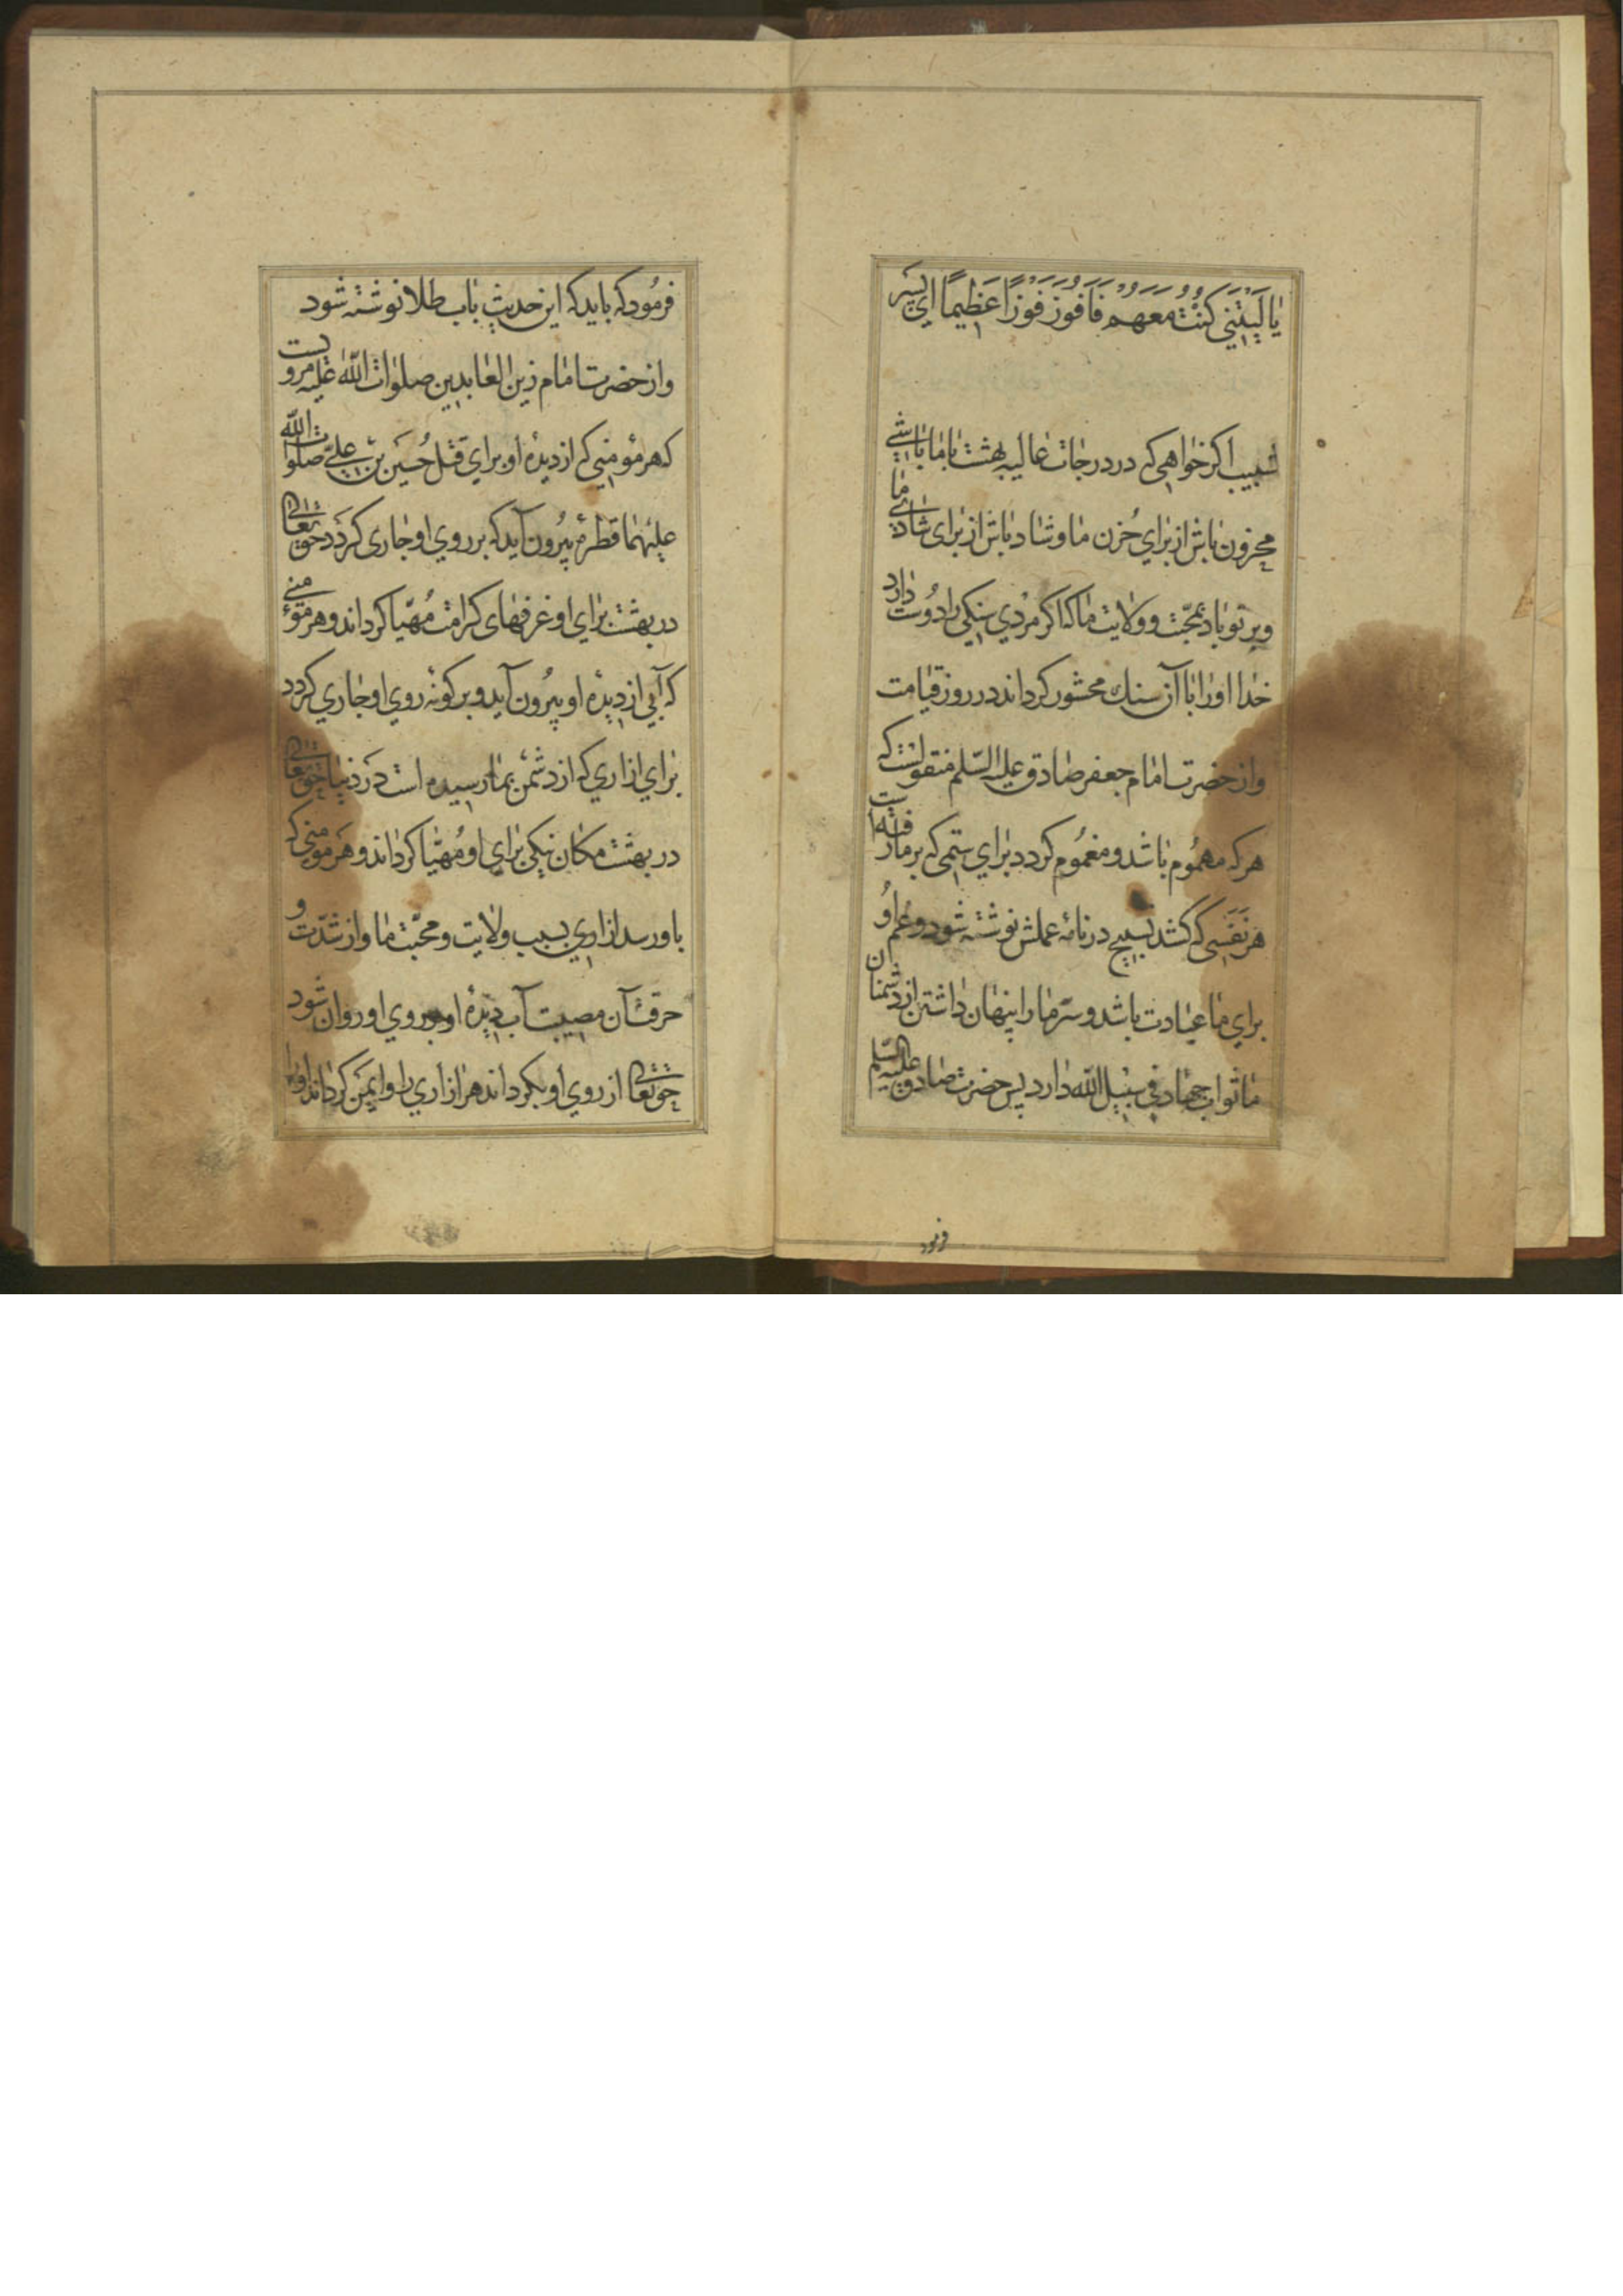 يٰا لَيْتَنِي كُنْتُ مَعَهُمْ فَاَفُوزَ فَوْزًا عَظِيمًا اي پسَر
شبيب اكر خواهي كه در درجات عاليه بهشت با ما باشي
محزون باش از براي حُزن ما و شاد باش از براى شادي ما
و بر تو باد بمحبّت و ولايت ما كه اكر مردي سنكي را دوُست دارد
خدا او را با آن سنك محشور كرداند در روز قيامت
و از حضرت امام جعفر صادق عليه السّلم منقولست كه
هر كه مهموُم باشد و مغموُم كردد براي ستمي كه بر ما رفته است
هر نَفَسي كه كشد تسبيح در نامهٔ عملش نوشته شود و غم اوُ
براي ما عبادت باشد و سرّ ما را پنهان داشتن از دشمنان
ما ثواب جهاد في سبيل الله دارد پس حضرت صادق عليه السّلم
فرمود
فرموُد كه بايد كه اين حديث باب طلا نوشته شود
و از حضرت امام زين العابدين صلوات الله عليه مرويست
كه هر مؤمني كه از ديدهٔ او براي قتل حُسَين بن علي صلوات الله
عليهما قطرهٔ بيروُن آيد كه بر روي او جارى كردَد حقتعالى
در بهشت براي او غرفهاى كرامت مُهيّا كرداند و هر مؤمني
كه آبي از ديدهٔ او بيرُون آيد و بر كونهٔ روي او جاري كردد
براي ازاري كه از دشمن بما رسيده است در دنيا حقتعالى
در بهشت مكان نيكي براي او مُهيّا كرداند و هَر مؤمني كه
باو رسد ازاري بسبب ولايت و محبّت ما و از شدّت و
حرقت آن مصيبت آب ديدهٔ او بر روي او روان شود
حقتعالى از روي او بكرداند هر ازاري را و ايمَن كرداند او را